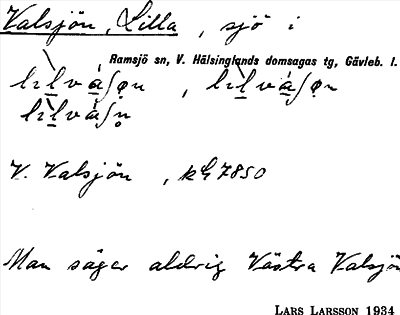 Valsjön, Lilla, sjö i
Ramsjö sn, V. Hälsinglands domsagas tg, Gävleb. l.
V. Valsjön, k 7850
Man säger aldrig Västra Valsjön
LARS LARSSON 1934